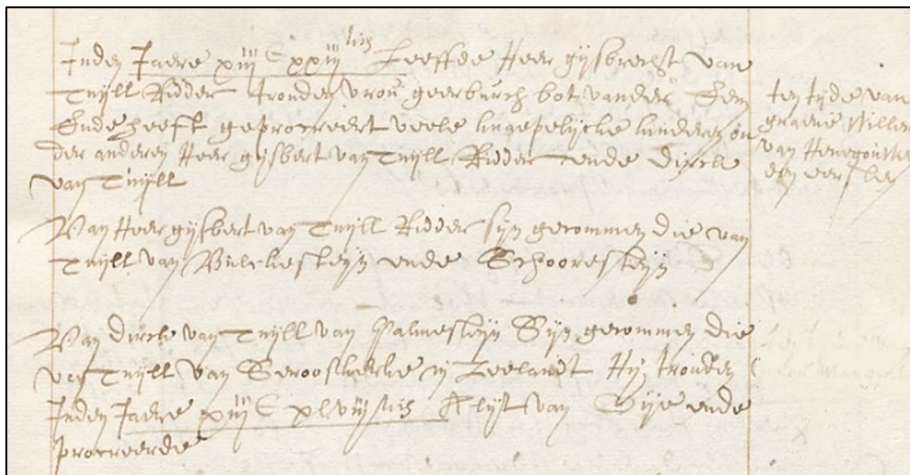 Inden Jaere xiijC xxiij Leeffde Heer gijsbrecht van
Tuijll Ridder trouden vrou geerburch bot vander Eem
Ende heeft geprocreert veele lingepelycke kinderen on
der anderen Heer gijsbert van Tuijll Ridder ende dirck
van Tuijll
Van Heer gijsbert van Tuijll Ridder sijn gecommen die van
Tuijll van Bulckesteijn ende Schooresteijn
Van dirck van Tuijll van Palmesteijn Sijn gecommen die
van Tuijll van Serooskercke in Zeelandt Hij trouden
Inden Jaere xiijC xlviij Alijt van Sije ende
procreerde
ten tyde van
graeve Willem
van Henegouwen